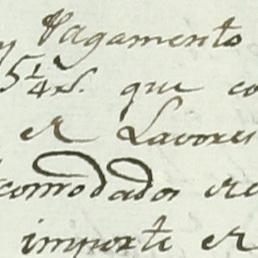 y Pagamento
5 1/4 rs. que co
er Lavores
comodados en
importe er